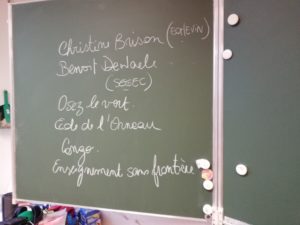 Christine Brison (ECHEVIN)
Benoit Dewaele
(SEGEC)
Osez le vert.
Ecole de l'Orneau
Congo.
Enseignement sans frontière